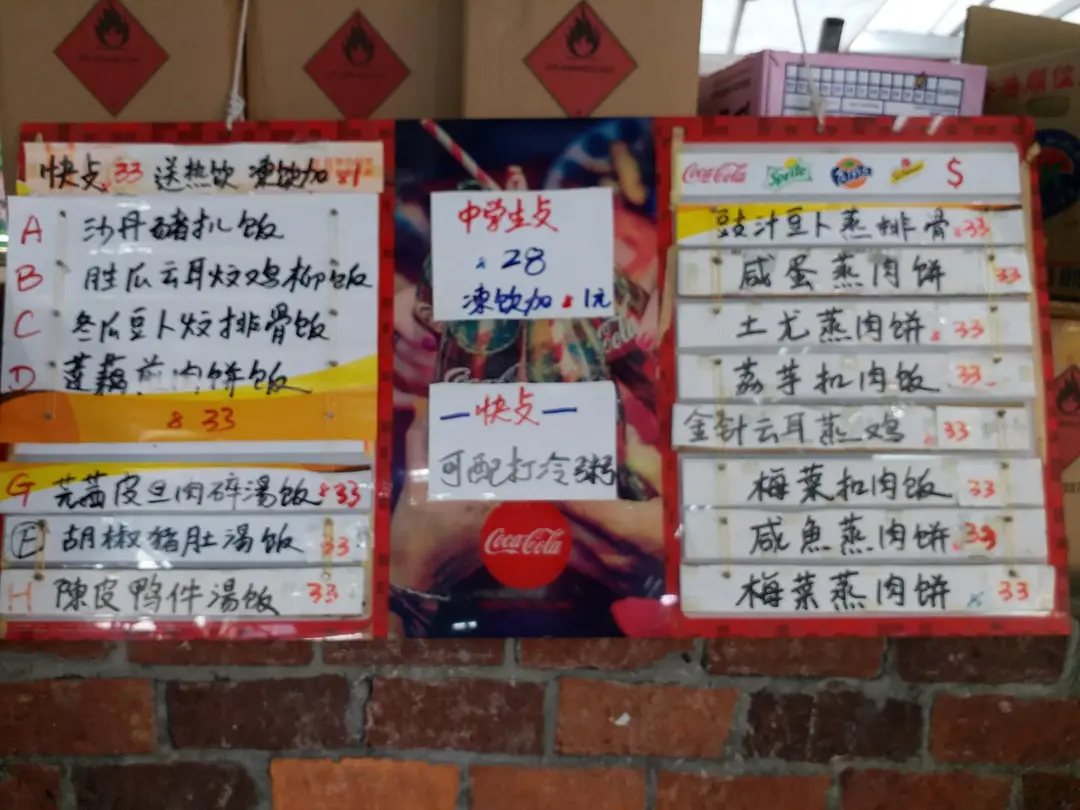 快点 33 送热饮 凍饮加 $1
A 沙丹豬扒饭
B 胜瓜云耳炆鸡柳饭
C 冬瓜豆卜炆排骨饭
D 蓮藕煎肉饼饭
$33
G 芫茜皮旦肉碎湯饭 $33
E 胡椒猪肚湯饭 33
H 陳皮鸭件湯饭 33
中学生点
$28
凍饮加 $1元
一快点一
可配打冷粥
Coca-Cola
Coca-Cola Sprite Fanta $
豉汁豆卜蒸排骨 $33
咸蛋蒸肉饼 33
土尤蒸肉饼 $33
荔芋扣肉饭 33
金针云耳蒸鸡 33
梅菜扣肉饭 33
咸魚蒸肉饼 $33
梅菜蒸肉饼 33